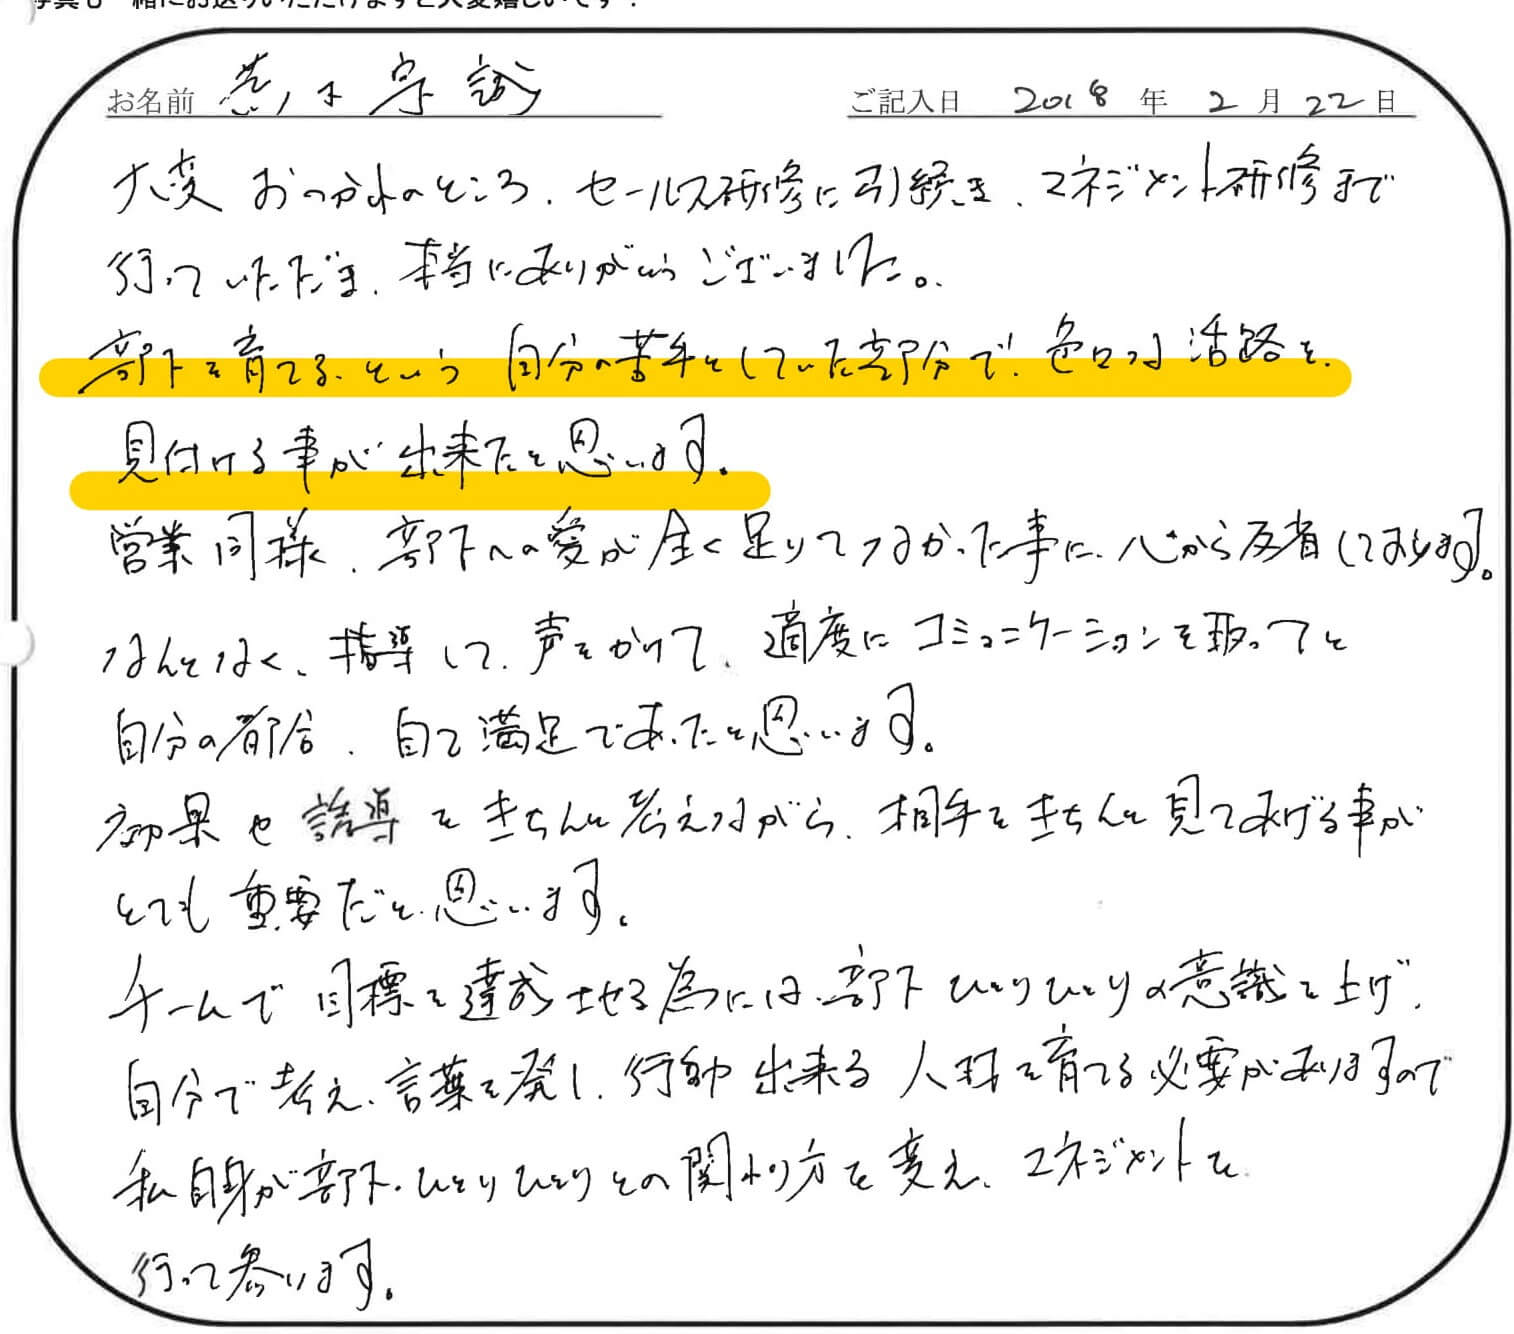 写真も一緒にお送りいただけますと大変嬉しいです！
お名前 荒木 宗誠 ご記入日 2018 年 2 月 22 日
大変 おつかれのところ、セールス研修に引続き、マネジメント研修まで
行っていただき、本当にありがとうございました。
部下を育てる、という 自分の苦手としていた部分で、色々な 活路を、
見付ける事が 出来たと思います。
営業同様、部下への愛が全く足りてなかった事に、心から反省しております。
なんとなく、指導して、声をかけて、適度に コミュニケーションを取ってと
自分の都合、自己満足であったと思います。
効果や 誘導を きちんと考えながら、相手をきちんと見てあげる事が
とても重要だと、思います。
チームで 目標を達成させる為には、部下ひとりひとりの意識を上げ、
自分で考え、言葉を発し、行動出来る 人材を育てる必要がありますので
私自身が部下、ひとりひとりとの関わり方を変え、マネジメントを
行って参ります。